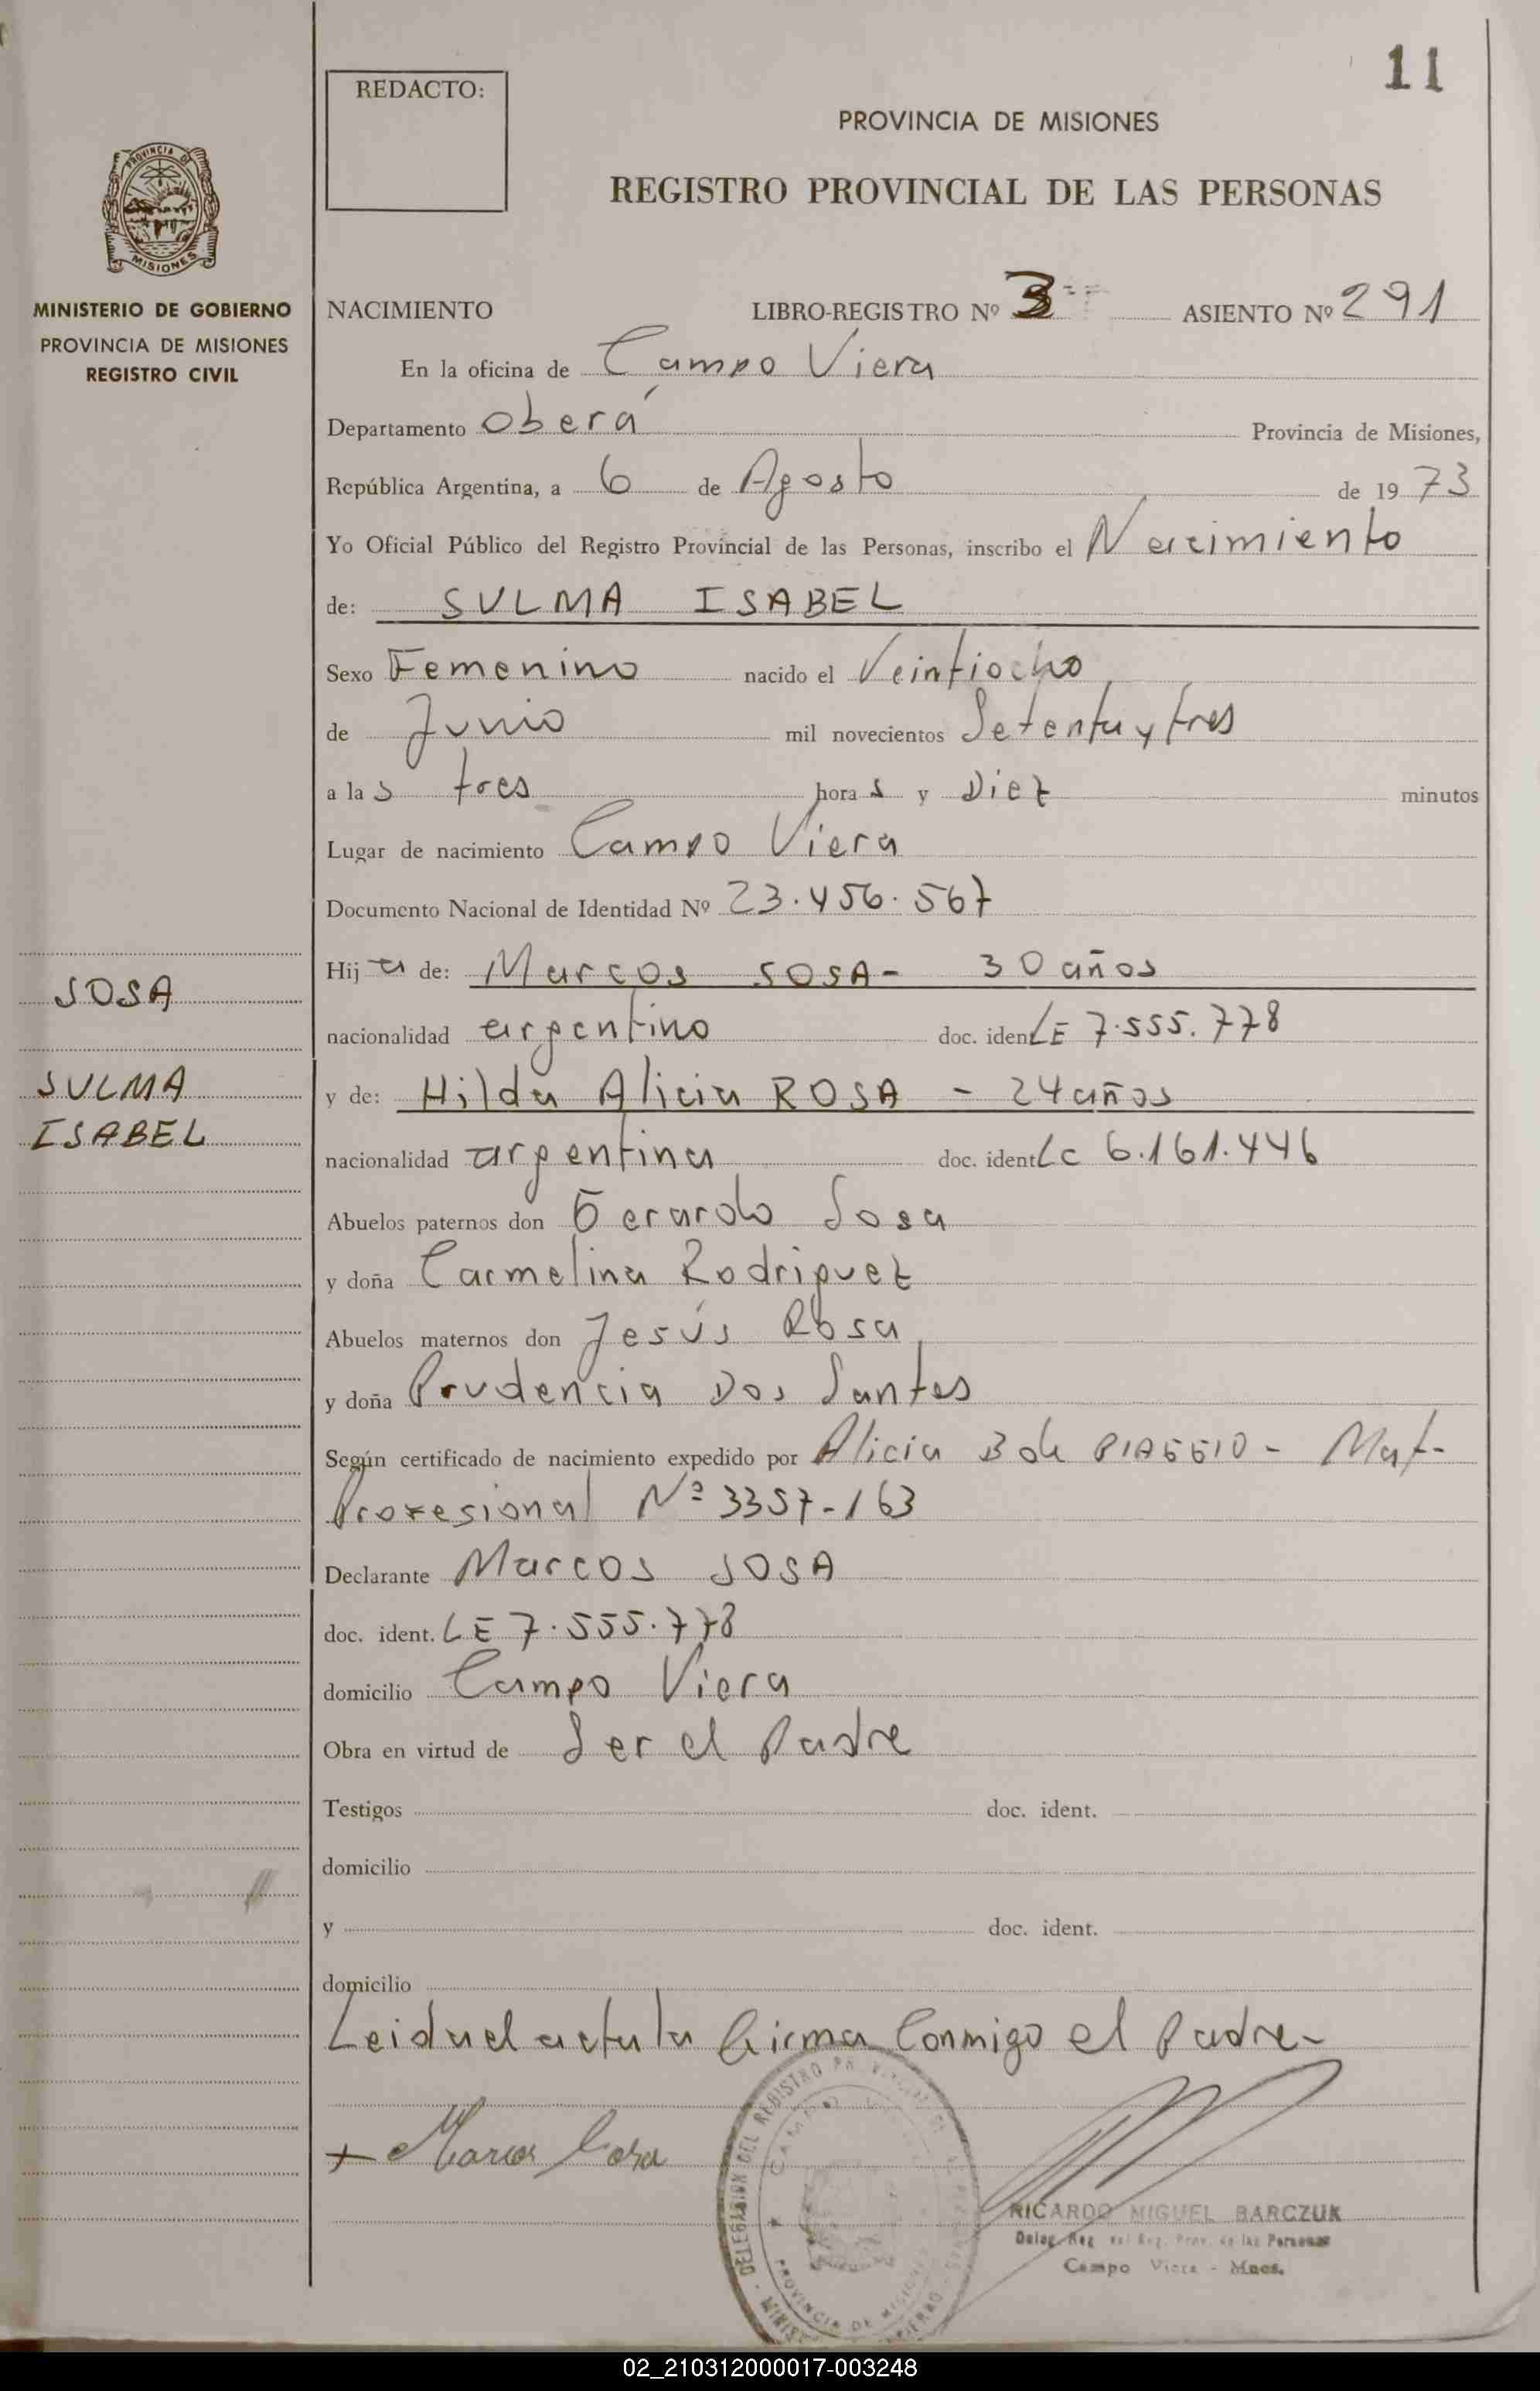 11
REDACTO:
PROVINCIA DE MISIONES
REGISTRO PROVINCIAL DE LAS PERSONAS
PROVINCIA DE
MISIONES
MINISTERIO DE GOBIERNO
PROVINCIA DE MISIONES
REGISTRO CIVIL
NACIMIENTO LIBRO-REGISTRO Nº 3 ASIENTO Nº 291
En la oficina de Campo Viera
Departamento Oberá Provincia de Misiones,
República Argentina, a 6 de Agosto de 1973
Yo Oficial Público del Registro Provincial de las Personas, inscribo el Nacimiento
de: SULMA ISABEL
Sexo Femenino nacido el Veintiocho
de Junio mil novecientos Setenta y tres
a las tres horas y Diez minutos
Lugar de nacimiento Campo Viera
Documento Nacional de Identidad Nº 23.456.567
Hija de: Marcos SOSA - 30 años
SOSA
nacionalidad argentino doc. iden LE 7.555.778
SULMA
y de: Hilda Alicia ROSA - 24 años
ISABEL
nacionalidad argentina doc. ident LC 6.161.446
Abuelos paternos don Gerardo Sosa
y doña Carmelina Rodriguez
Abuelos maternos don Jesús Rosa
y doña Prudencia Dos Santos
Según certificado de nacimiento expedido por Alicia B de - Mat-
Profesional Nº 3357-163
Declarante Marcos SOSA
doc. ident. LE 7.555.778
domicilio Campo Viera
Obra en virtud de Ser el Padre
Testigos doc. ident.
domicilio
y doc. ident.
domicilio
Leida el acta la firma Conmigo el Padre-
+ Marcos Sosa
DELEGACION DEL REGISTRO
PROVINCIA DE MISIONES
RICARDO MIGUEL BARCZUK
Deleg. Reg. del Reg. Prov. de las Personas
Campo Viera - Mnes.
02_210312000017-003248